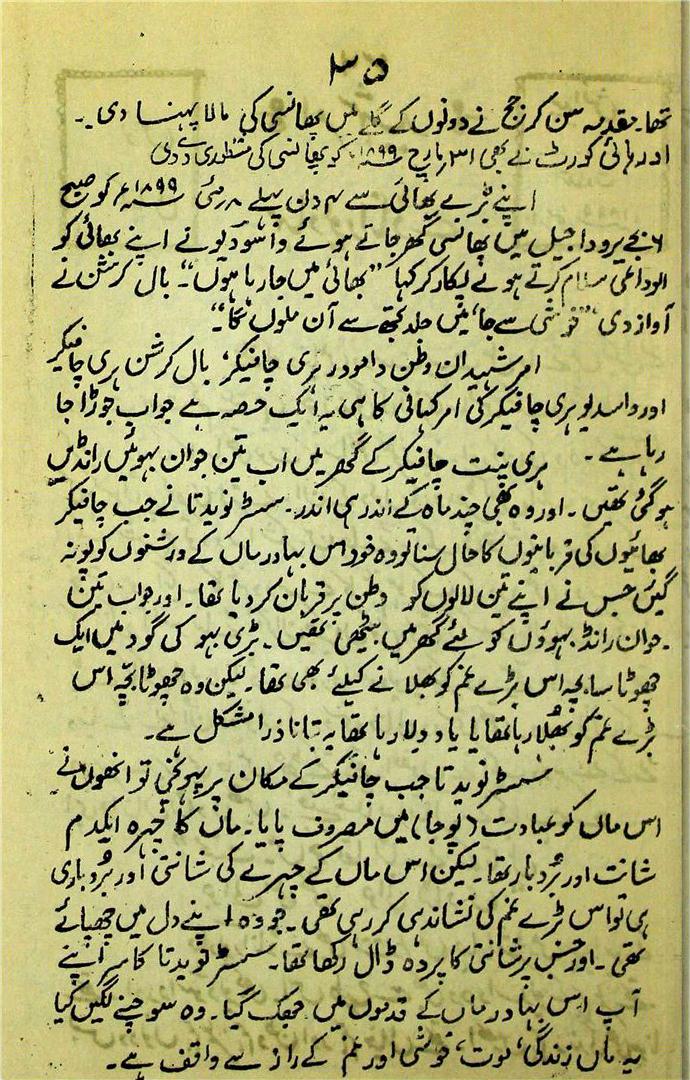 ۳۵
تھا۔ مقدمہ سن کر جج نے دونوں کے گلے میں پھانسی کی مالا پہنا دی۔
اور ہائی کورٹ نے بھی ۳۱ مارچ ۱۸۹۹ء کو پھانسی کی منظوری دے دی
اپنے بڑے بھائی سے ۴ دن پہلے ۸ مئی ۱۸۹۹ء کو صبح
۶ بجے یرودا جیل میں پھانسی گھر جاتے ہوئے واسودیو نے اپنے بھائی کو
الوداعی سلام کرتے ہوئے پکار کر کہا ”بھائی میں جا رہا ہوں“۔ بال کرشن نے
آواز دی ”خوشی سے جا، میں جلد تجھ سے آن ملوں گا“۔
امر شہیدان وطن دامودر ہری چافیکر، بال کرشن ہری چافیکر
اور واسدیو ہری چافیکر کی امر کہانی کا ہی یہ ایک حصہ ہے جو اب جوڑا جا
رہا ہے۔ ہری پنت چافیکر کے گھر میں اب تین جوان بہوئیں رانڈیں
ہو گئی تھیں۔ اور وہ بھی چند ماہ کے اندر ہی اندر۔ سسٹر نویدتا نے جب چافیکر
بھائیوں کی قربانیوں کا حال سنا تو وہ خود اس بہادر ماں کے درشنوں کو پونہ
گئیں جس نے اپنے تین لالوں کو وطن پر قربان کر دیا تھا۔ اور جو اب تین
جوان رانڈ بہوؤں کو لئے گھر میں بیٹھی تھیں۔ بڑی بہو کی گود میں ایک
چھوٹا سا بچہ اس بڑے غم کو بھلانے کیلئے بھی تھا۔ لیکن وہ چھوٹا بچہ اس
بڑے غم کو بھلا رہا تھا یا یاد دلا رہا تھا یہ بتانا ذرا مشکل ہے۔
سسٹر نویدتا جب چافیکر کے مکان پر پہونچی تو انھوں نے
اس ماں کو عبادت (پوجا) میں مصروف پایا۔ ماں کا چہرہ ایکدم
شانت اور بُردبار تھا۔ لیکن اس ماں کے چہرے کی شانتی اور بُردباری
ہی تو اس بڑے غم کی نشاندہی کر رہی تھی۔ جو وہ اپنے دل میں چھپائے
تھی۔ اور جس پر شانتی کا پردہ ڈال رکھا تھا۔ سسٹر نویدتا کا سر اپنے
آپ اس بہادر ماں کے قدموں میں جھک گیا۔ وہ سوچنے لگیں کیا
یہ ماں زندگی، موت، خوشی اور غم کے راز سے واقف ہے۔